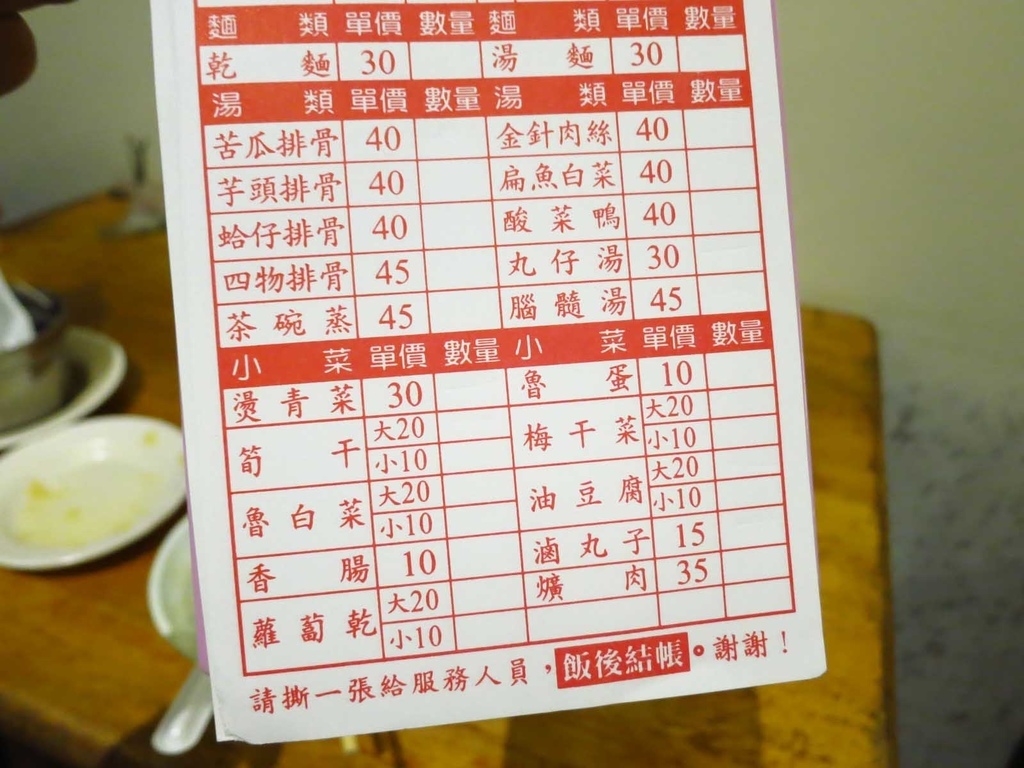 麵類 單價 數量 麵類 單價 數量
乾麵 30 湯麵 30
湯類 單價 數量 湯類 單價 數量
苦瓜排骨 40 金針肉絲 40
芋頭排骨 40 扁魚白菜 40
蛤仔排骨 40 酸菜鴨 40
四物排骨 45 丸仔湯 30
茶碗蒸 45 腦髓湯 45
小菜 單價 數量 小菜 單價 數量
燙青菜 30 魯蛋 10
筍干 大20 小10 梅干菜 大20 小10
魯白菜 大20 小10 油豆腐 大20 小10
香腸 10 滷丸子 15
蘿蔔乾 大20 小10 爌肉 35
請撕一張給服務人員，飯後結帳。謝謝！